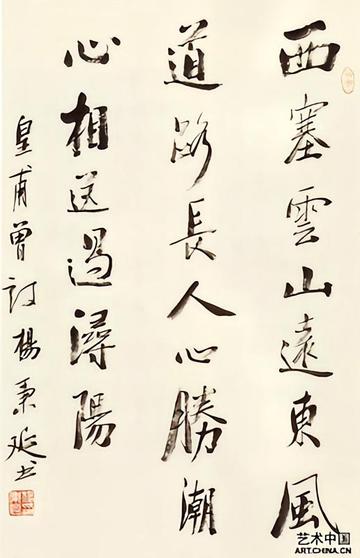 西塞雲山遠東風
道路長人心勝潮
心相送過潯陽
皇甫曾詩楊秉延书
艺术中国
ART.CHINA.CN